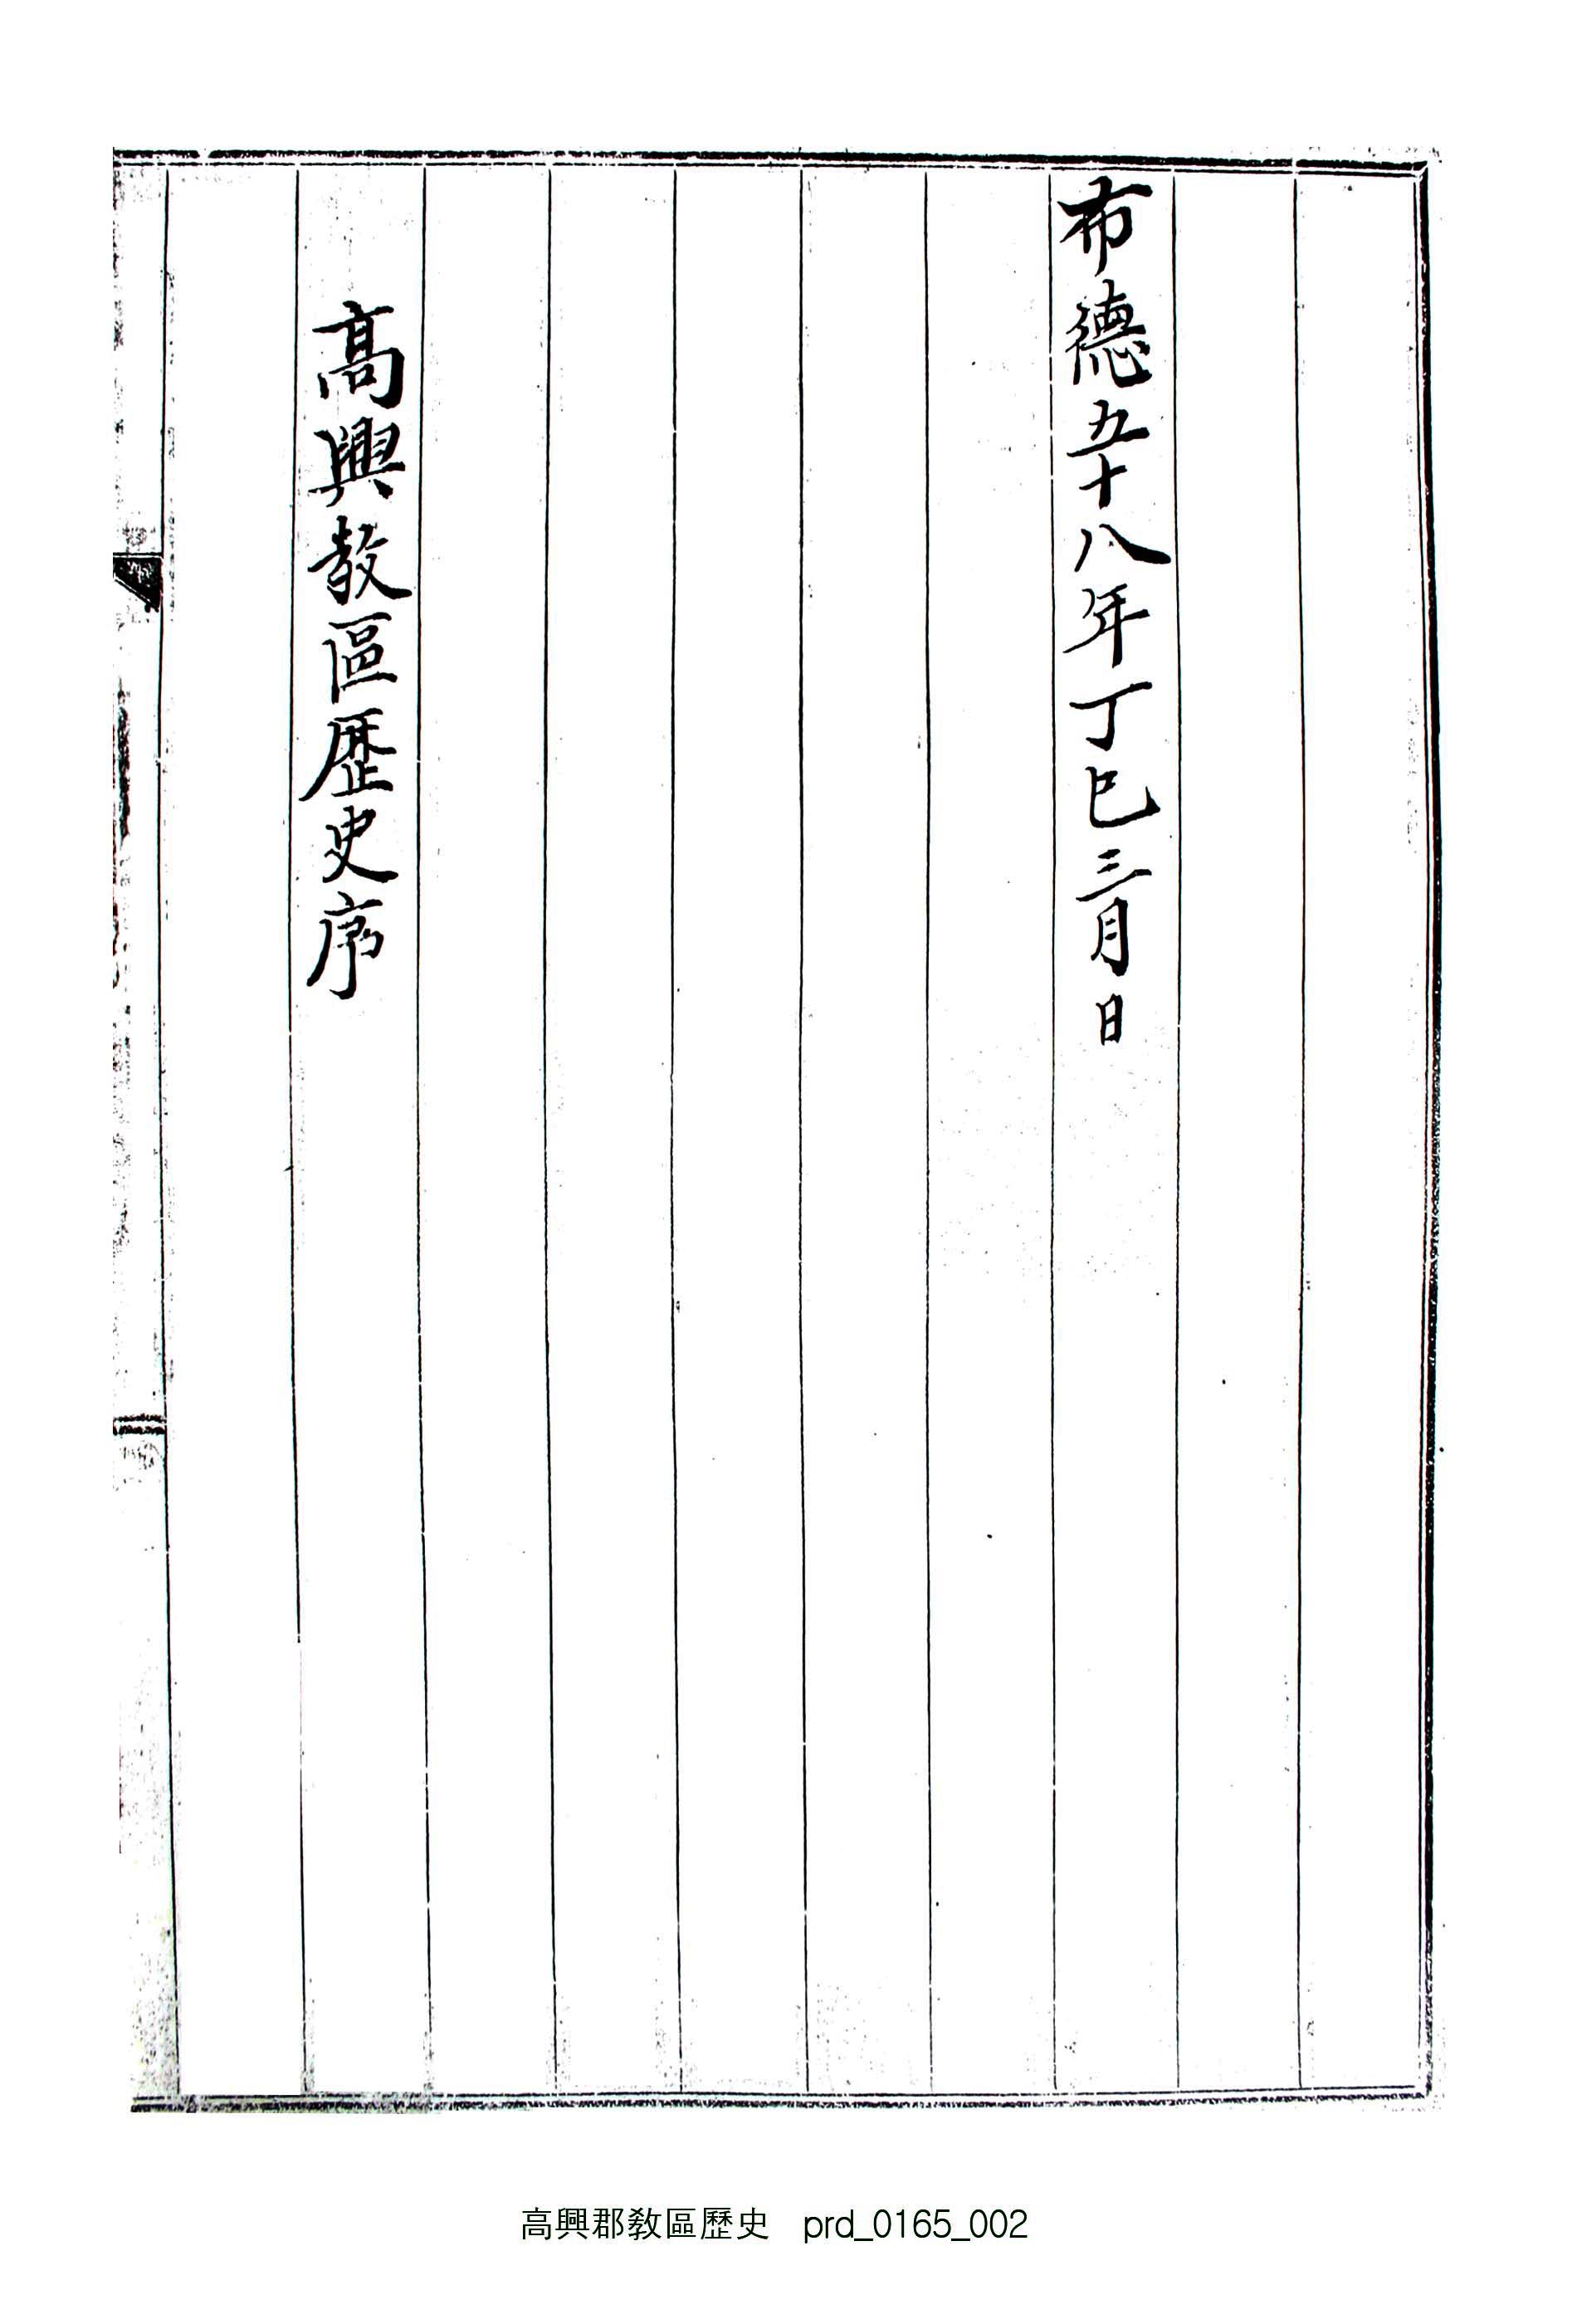 布德五十八年丁巳三月日
高興教區歷史序
高興郡敎區歷史 prd_0165_002